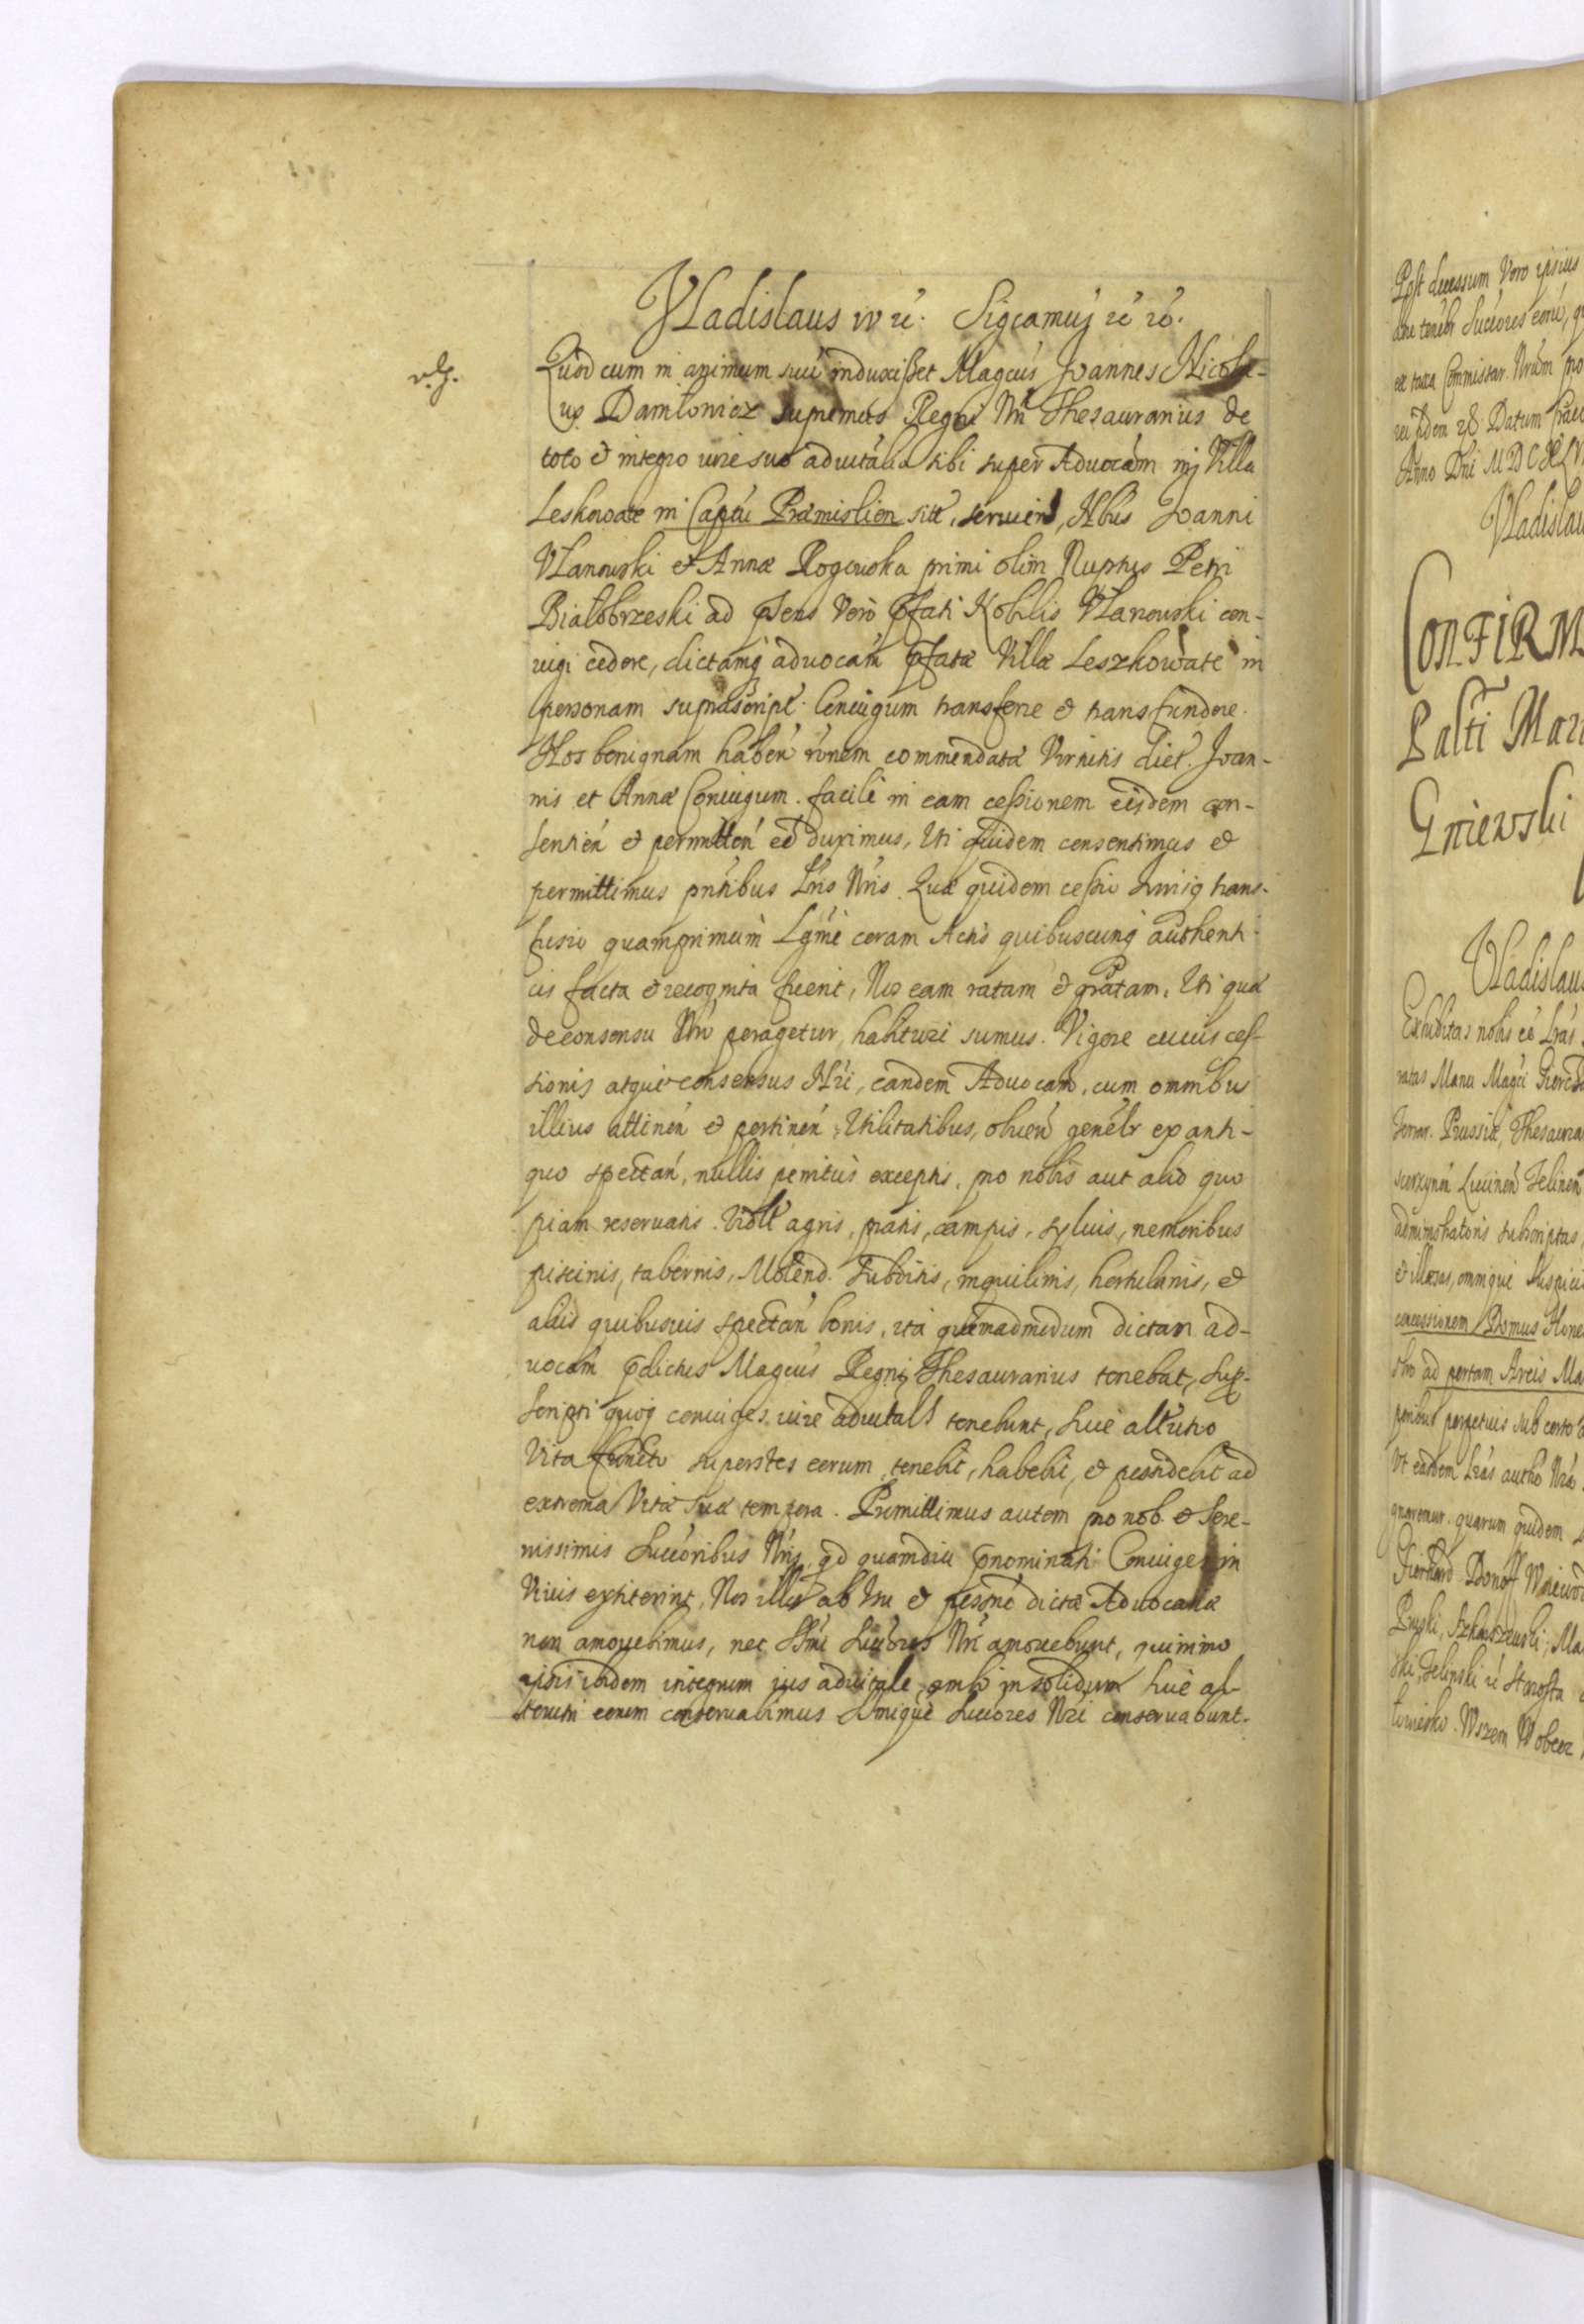 Vladislaus IV rē. Sigcamuj rē rē.
Quod cum in animum suū induxisset Magcūs Joannes Nicola-
us Daniłowicz supremus Regni Nri Thesaurarius de
toto et integro iure suo aduitali sibi super Aduocām in Villa
Leskowate in Captū Præmislien sitt, seruien, Nbus Joanni
Vłanowski et Annæ Rogowska primi olim Nuptys Petri
Białobrzeski ad pſens vero pfati Nobilis Vłanowski con-
iugi cedere, dictamq aduocām pfatæ Villæ Leszkowate in
personam suprascript. Coniugum transferre et transfundere.
Nos benignam haben rōnem commendatæ Virtutis dict. Joan-
nis et Annæ Coniugum. facile in eam cessionem eisdem con-
sentien et permitten eē duximus, Vti quidem consentimus et
permittimus pntibus Lris Nris. Quæ quidem cessio Jurisq trans-
fusio quamprimum Lgmē coram Actis quibuscunq authenti-
cis facta et recognita fuerit, Nos eam ratam et gratam, Vti quæ
de consensu Nrō peragetur, habituri sumus. Vigore cuius ces-
sionis atque consensus Nri, eandem Aduocam, cum omnibus
illius attinen et pertinen, Vtilitatibus, obuen genēlr ex anti-
quo spectan, nullis penitus exceptis, pro nobis aut alio quo
piam reseruatis. Vidlt agris, pratis, campis, syluis, nemoribus
piscinis, tabernis, Molend. subditis, inquilinis, hortulanis, et
aliis quibusuis spectan bonis, ita quemadmodum dictam ad-
uocam pdictus Magcus Regni Thesaurarius tenebat, sup-
scripti quoq coniuges iure aduitali tenebunt, siue altrutro
Vita functo superstes eorum tenebit, habebit, et possidebit ad
extrema Vitæ suæ tempora. Promittimus autem pro nob. et Sere-
nissimis Succoribus Nris, qd quamdiu pnominati Coniuges in
Viuis extiterint, Nos illos ab Vsu et possnē dictæ Aduocatiæ
non amouebimus, nec Smi Succores Nri amouebunt, quinimo
ipsis ibidem integrum jus aduitale, ambo in solidum siue al-
terutri eorum conseruabimus Smique Succores Nri conseruabunt.
Post decessum Vero ipsius
Succores
ex taxa Commissar. Nrum
rei fidem Datum
Anno Dni
Vladislau
CONFIRM
Palti Mari
Gniewski
Vladislaus
Exhibitas nobis eē Lras
ratas Manu Magci
terrar. Prussiæ, Thesaura
administratoris subscriptas,
et illæsas, omnique suspicio
concessionem Domus Hone
ad portam Arcis Ma
perpetuis sub certo
Vt easdem Lras autho Nra
quarum quidem
Donoff Woiewod
Ma
Starosta
Wszem Wobecz